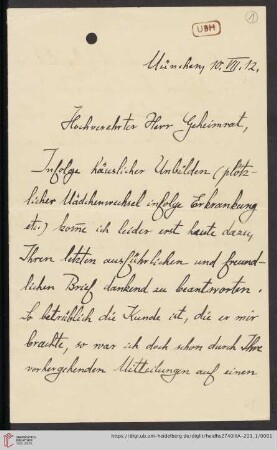 UBH
1
München, 10. VII. 12.
Hochverehrter Herr Geheimrat,
Infolge häuslicher Unbilden (plötz-
licher Mädchenwechsel infolge Erkrankung
etc.) kom̅e ich leider erst heute dazu,
Ihren letzten ausführlichen und freund-
lichen Brief dankend zu beantworten.
So betrüblich die Kunde ist, die er mir
brachte, so war ich doch schon durch Ihre
vorhergehenden Mitteilungen auf einen